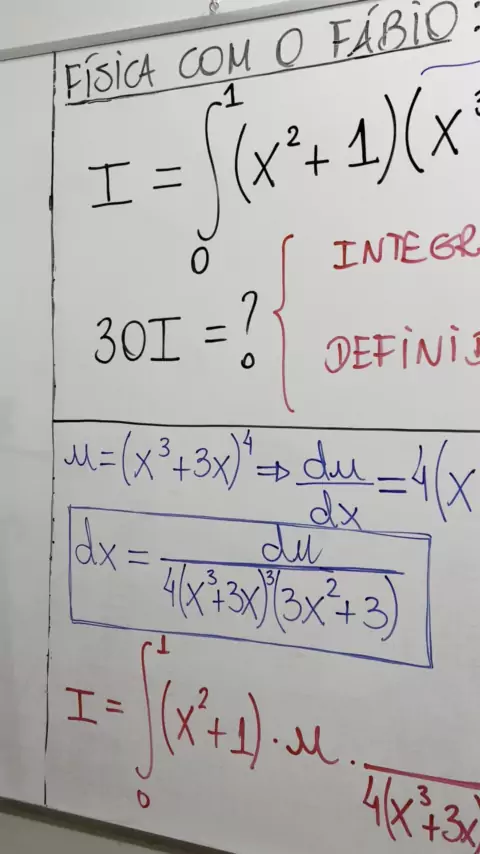 FÍSICA COM O FÁBIO:
I = ∫₀¹ (x² + 1)(x³
30I = ?
INTEGR
DEFINID
u = (x³ + 3x)⁴ ⇒ du/dx = 4(x
dx = du / 4(x³+3x)³(3x²+3)
I = ∫₀¹ (x²+1) · u · / 4(x³+3x)